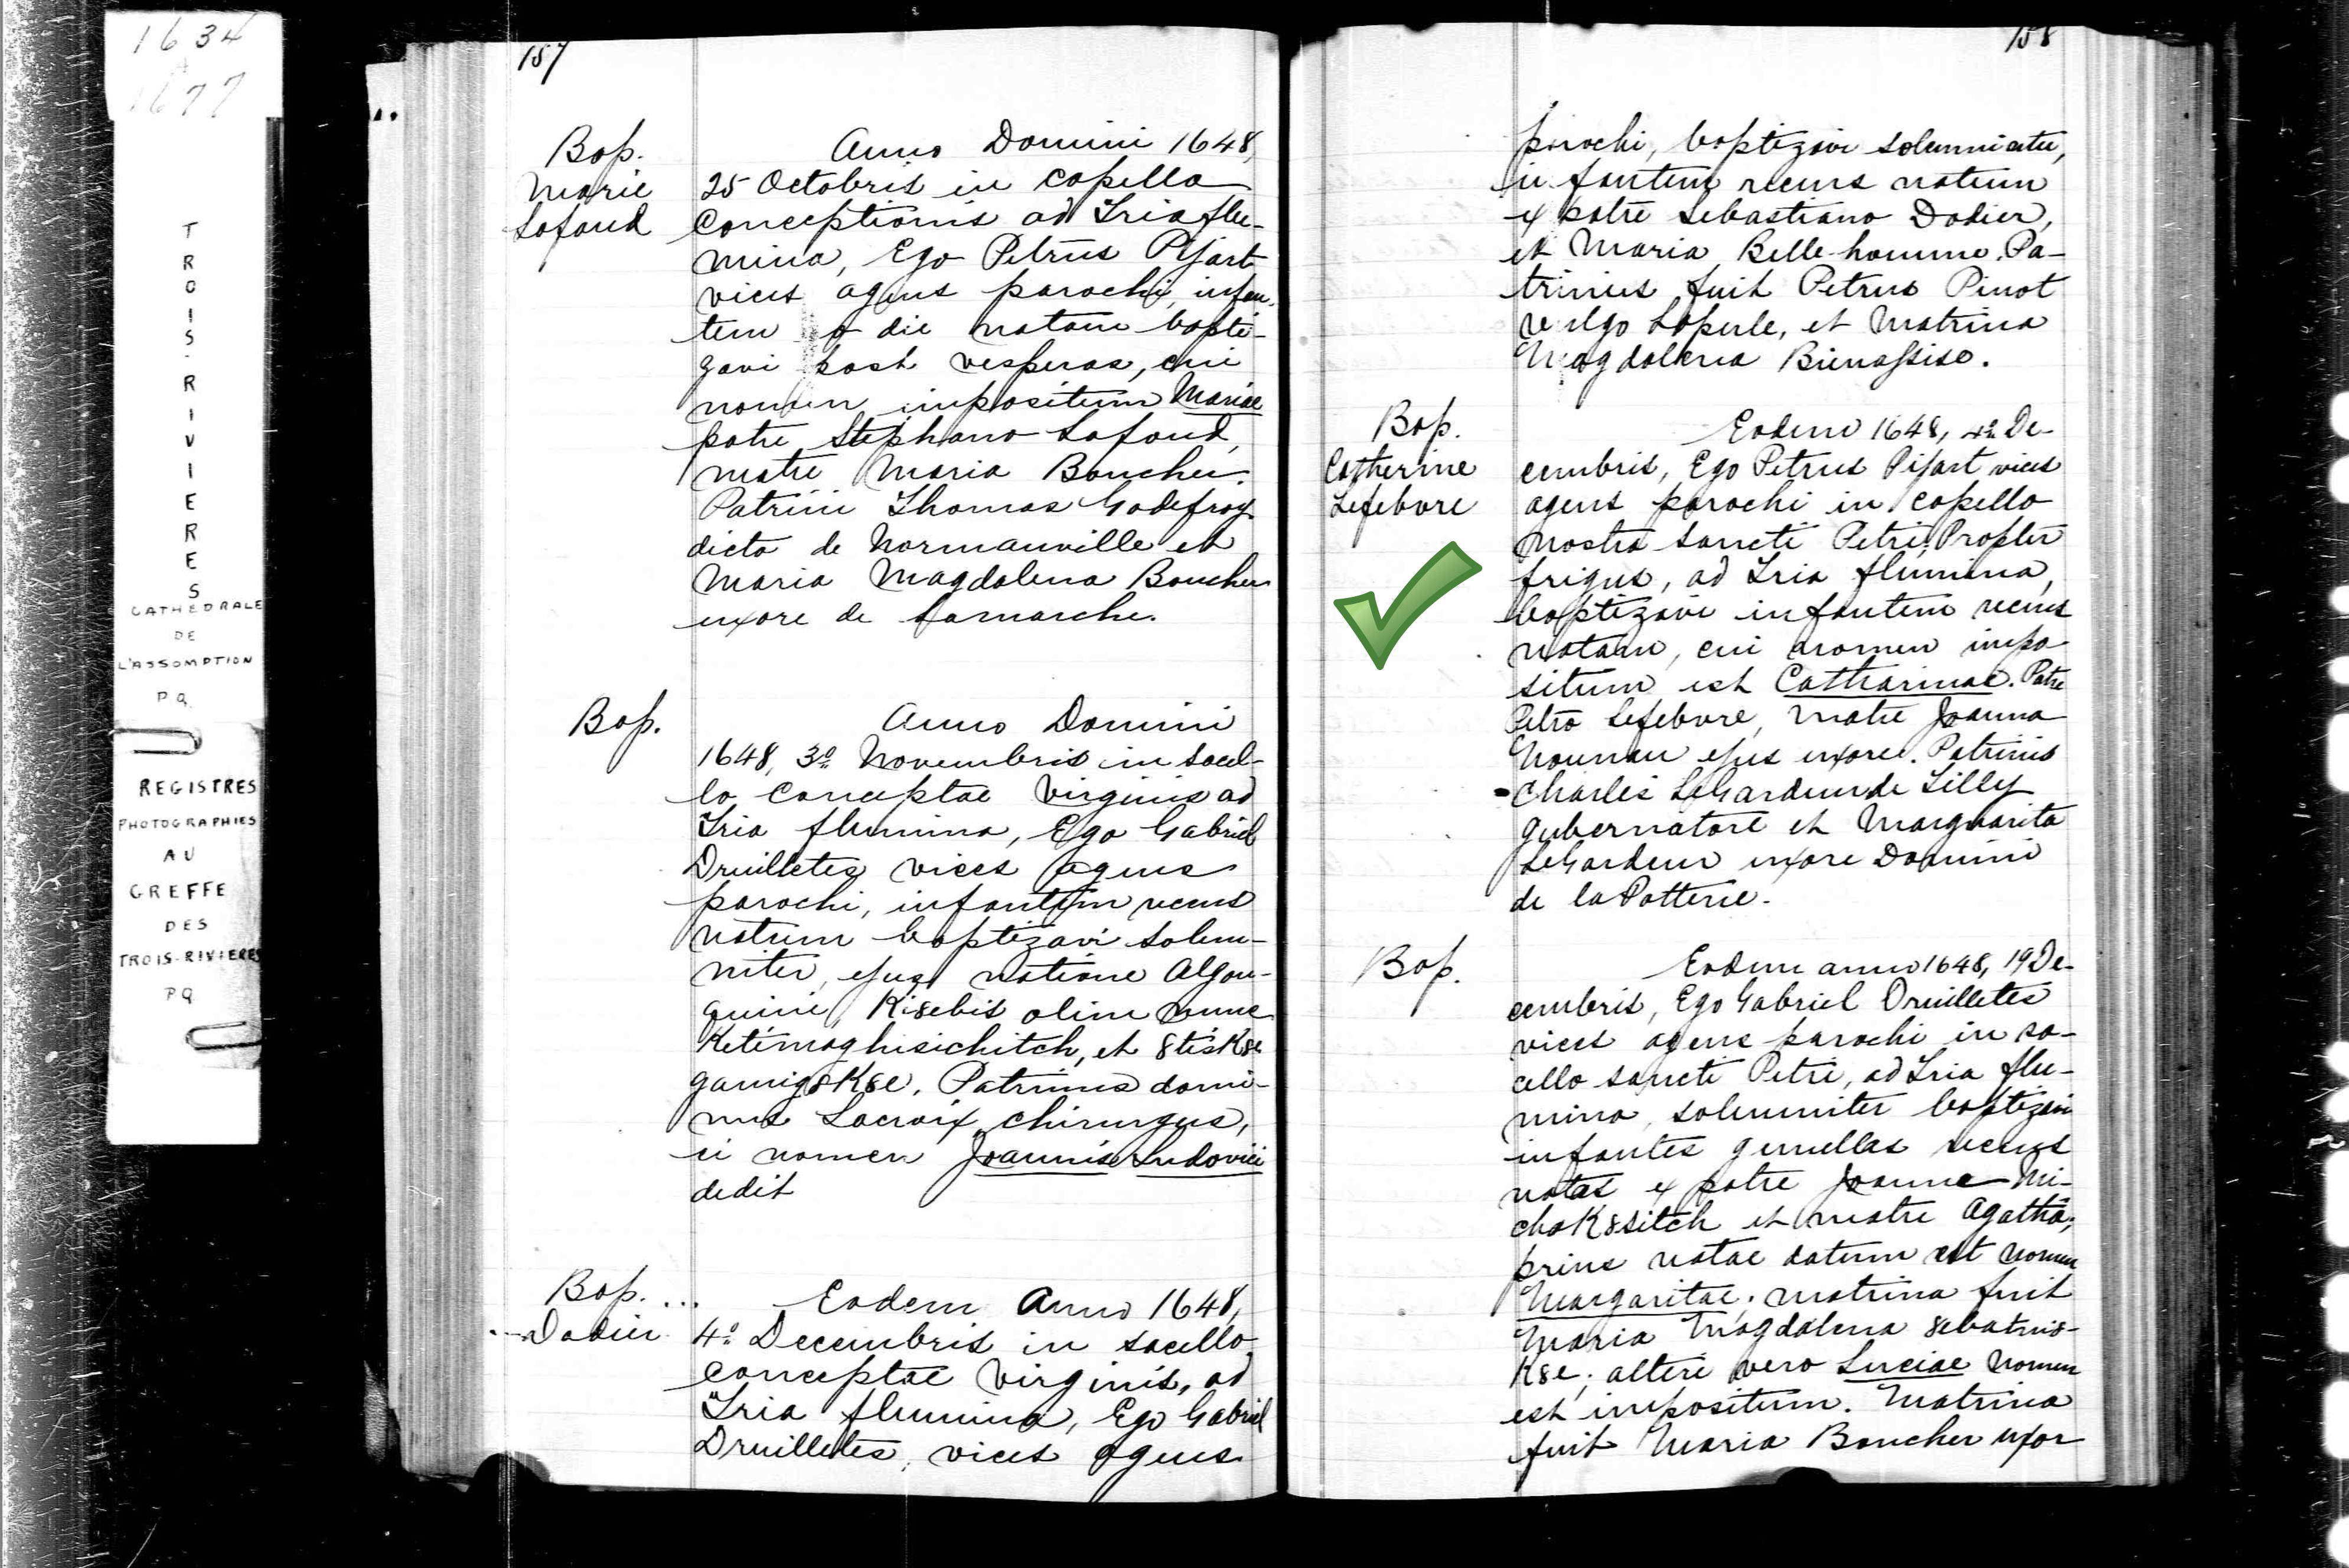 1634
A
1677
TROIS-RIVIERES
CATHEDRALE
DE
L'ASSOMPTION
PQ
REGISTRES
PHOTOGRAPHIES
AU
GREFFE
DES
TROIS-RIVIERES
PQ
157
Bap.
Marie
Lafond
Anno Domini 1648,
25 Octobris in capella
Conceptionis ad Tria flu-
mina, Ego Petrus Pijart
vices agens parochi, infan-
tem a die natam bapti-
zavi post vesperas, cui
nomen impositum Mariae
patre Stephano Lafond,
matre Maria Boucher.
Patrini Thomas Godefroy
dicto de Normanville et
Maria Magdalena Boucher
uxore de Lamarche.
Bap.
Anno Domini
1648, 3º Novembris in sacel-
lo Conceptae Virginis ad
Tria flumina, Ego Gabriel
Druilletes vices agens
parochi, infantem recens
natum baptizavi solem-
niter, ejus natione Algon-
quini, Ki8ebis olim nunc
Ketimaghisichitch, et 8tisk8e
gamig8k8e. Patrinus domi-
nus Lacroix chirurgus,
ei nomen Joannis Ludovici
dedit
Bap. ...
... Dodier
Eodem Anno 1648,
4º Decembris in sacello
conceptae Virginis, ad
Tria flumina, Ego Gabriel
Druilletes, vices agens
158
parochi, baptizavi solemniter,
infantem recens natum
ex patre Sebastiano Dodier,
et Maria Belle-homme. Pa-
trinus fuit Petrus Pinot
vulgo Laperle, et Matrina
Magdalena Bienassise.
Bap.
Catherine
Lefebvre
Eodem 1648, 4º De-
cembris, Ego Petrus Pijart vices
agens parochi in capella
nostra Sancti Petri, Propter
frigus, ad Tria flumina,
baptizavi infantem recens
natam, cui nomen impo-
situm est Catharinae. Patre
Petro Lefebvre, Matre Joanna
Nouneau ejus uxore. Patrinis
Charles LeGardeur de Tilly
gubernatore et Marguarita
LeGardeur uxore Domini
de la Potterie.
Bap.
Eodem anno 1648, 19 De-
cembris, Ego Gabriel Druilletes
vices agens parochi in sa-
cello sancti Petri, ad Tria flu-
mina, solemniter baptizavi
infantes gemellas recens
natas ex patre Joanne Mi-
chak8sitch et matre Agatha;
prius natae datum est nomen
Margaritae; matrina fuit
Maria Magdalena
k8e; alteri vero Luciae nomen
est impositum. Matrina
fuit Maria Boucher uxor